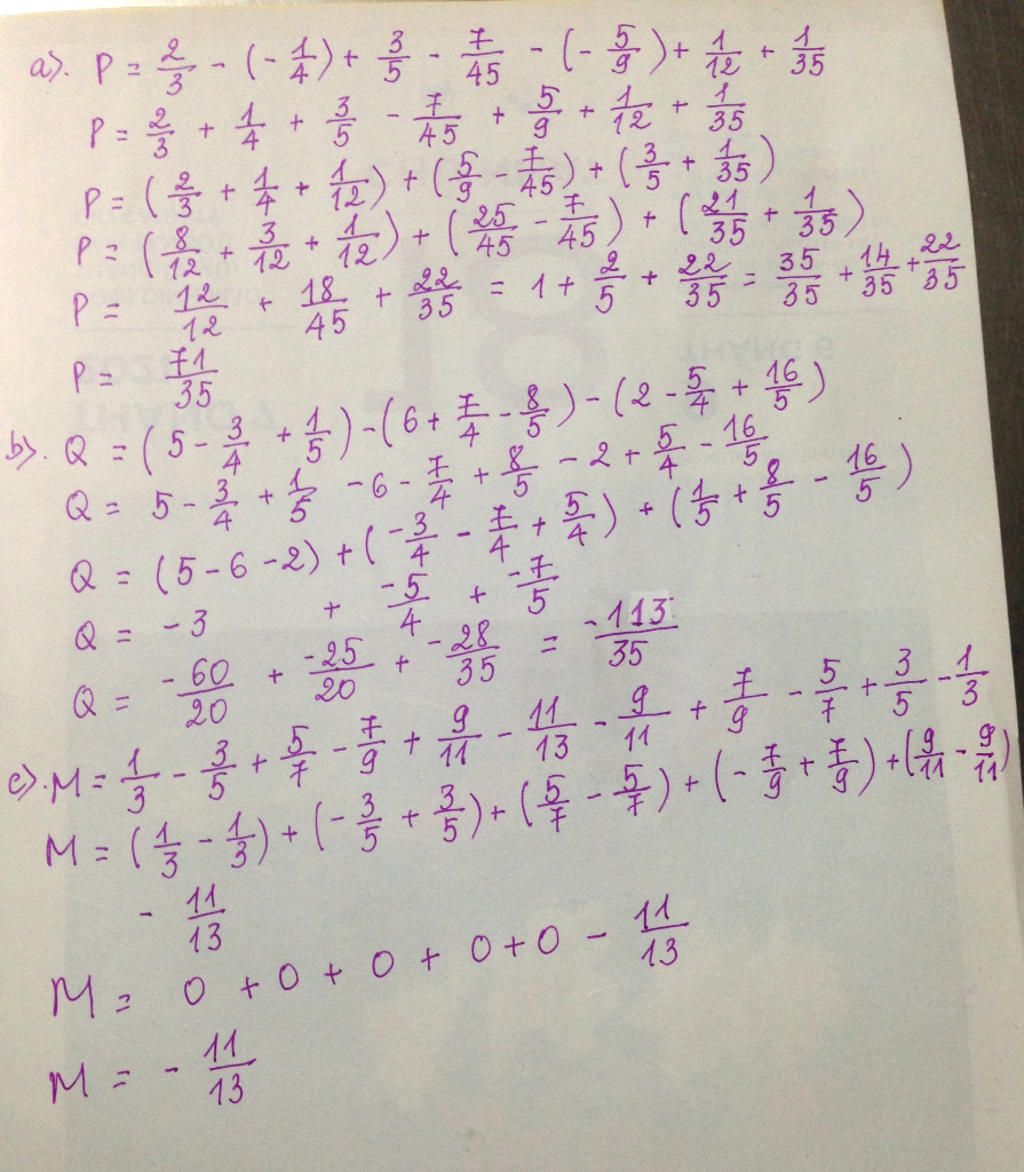 a). P = 2/3 - (-1/4) + 3/5 - 7/45 - (-5/9) + 1/12 + 1/35
P = 2/3 + 1/4 + 3/5 - 7/45 + 5/9 + 1/12 + 1/35
P = (2/3 + 1/4 + 1/12) + (5/9 - 7/45) + (3/5 + 1/35)
P = (8/12 + 3/12 + 1/12) + (25/45 - 7/45) + (21/35 + 1/35)
P = 12/12 + 18/45 + 22/35 = 1 + 2/5 + 22/35 = 35/35 + 14/35 + 22/35
P = 71/35
b). Q = (5 - 3/4 + 1/5) - (6 + 7/4 - 8/5) - (2 - 5/4 + 16/5)
Q = 5 - 3/4 + 1/5 - 6 - 7/4 + 8/5 - 2 + 5/4 - 16/5
Q = (5 - 6 - 2) + (-3/4 - 7/4 + 5/4) + (1/5 + 8/5 - 16/5)
Q = -3 + -5/4 + -7/5
Q = -60/20 + -25/20 + -28/35 = -113/35
c). M = 1/3 - 3/5 + 5/7 - 7/9 + 9/11 - 11/13 - 9/11 + 7/9 - 5/7 + 3/5 - 1/3
M = (1/3 - 1/3) + (-3/5 + 3/5) + (5/7 - 5/7) + (-7/9 + 7/9) + (9/11 - 9/11)
- 11/13
M = 0 + 0 + 0 + 0 + 0 - 11/13
M = - 11/13